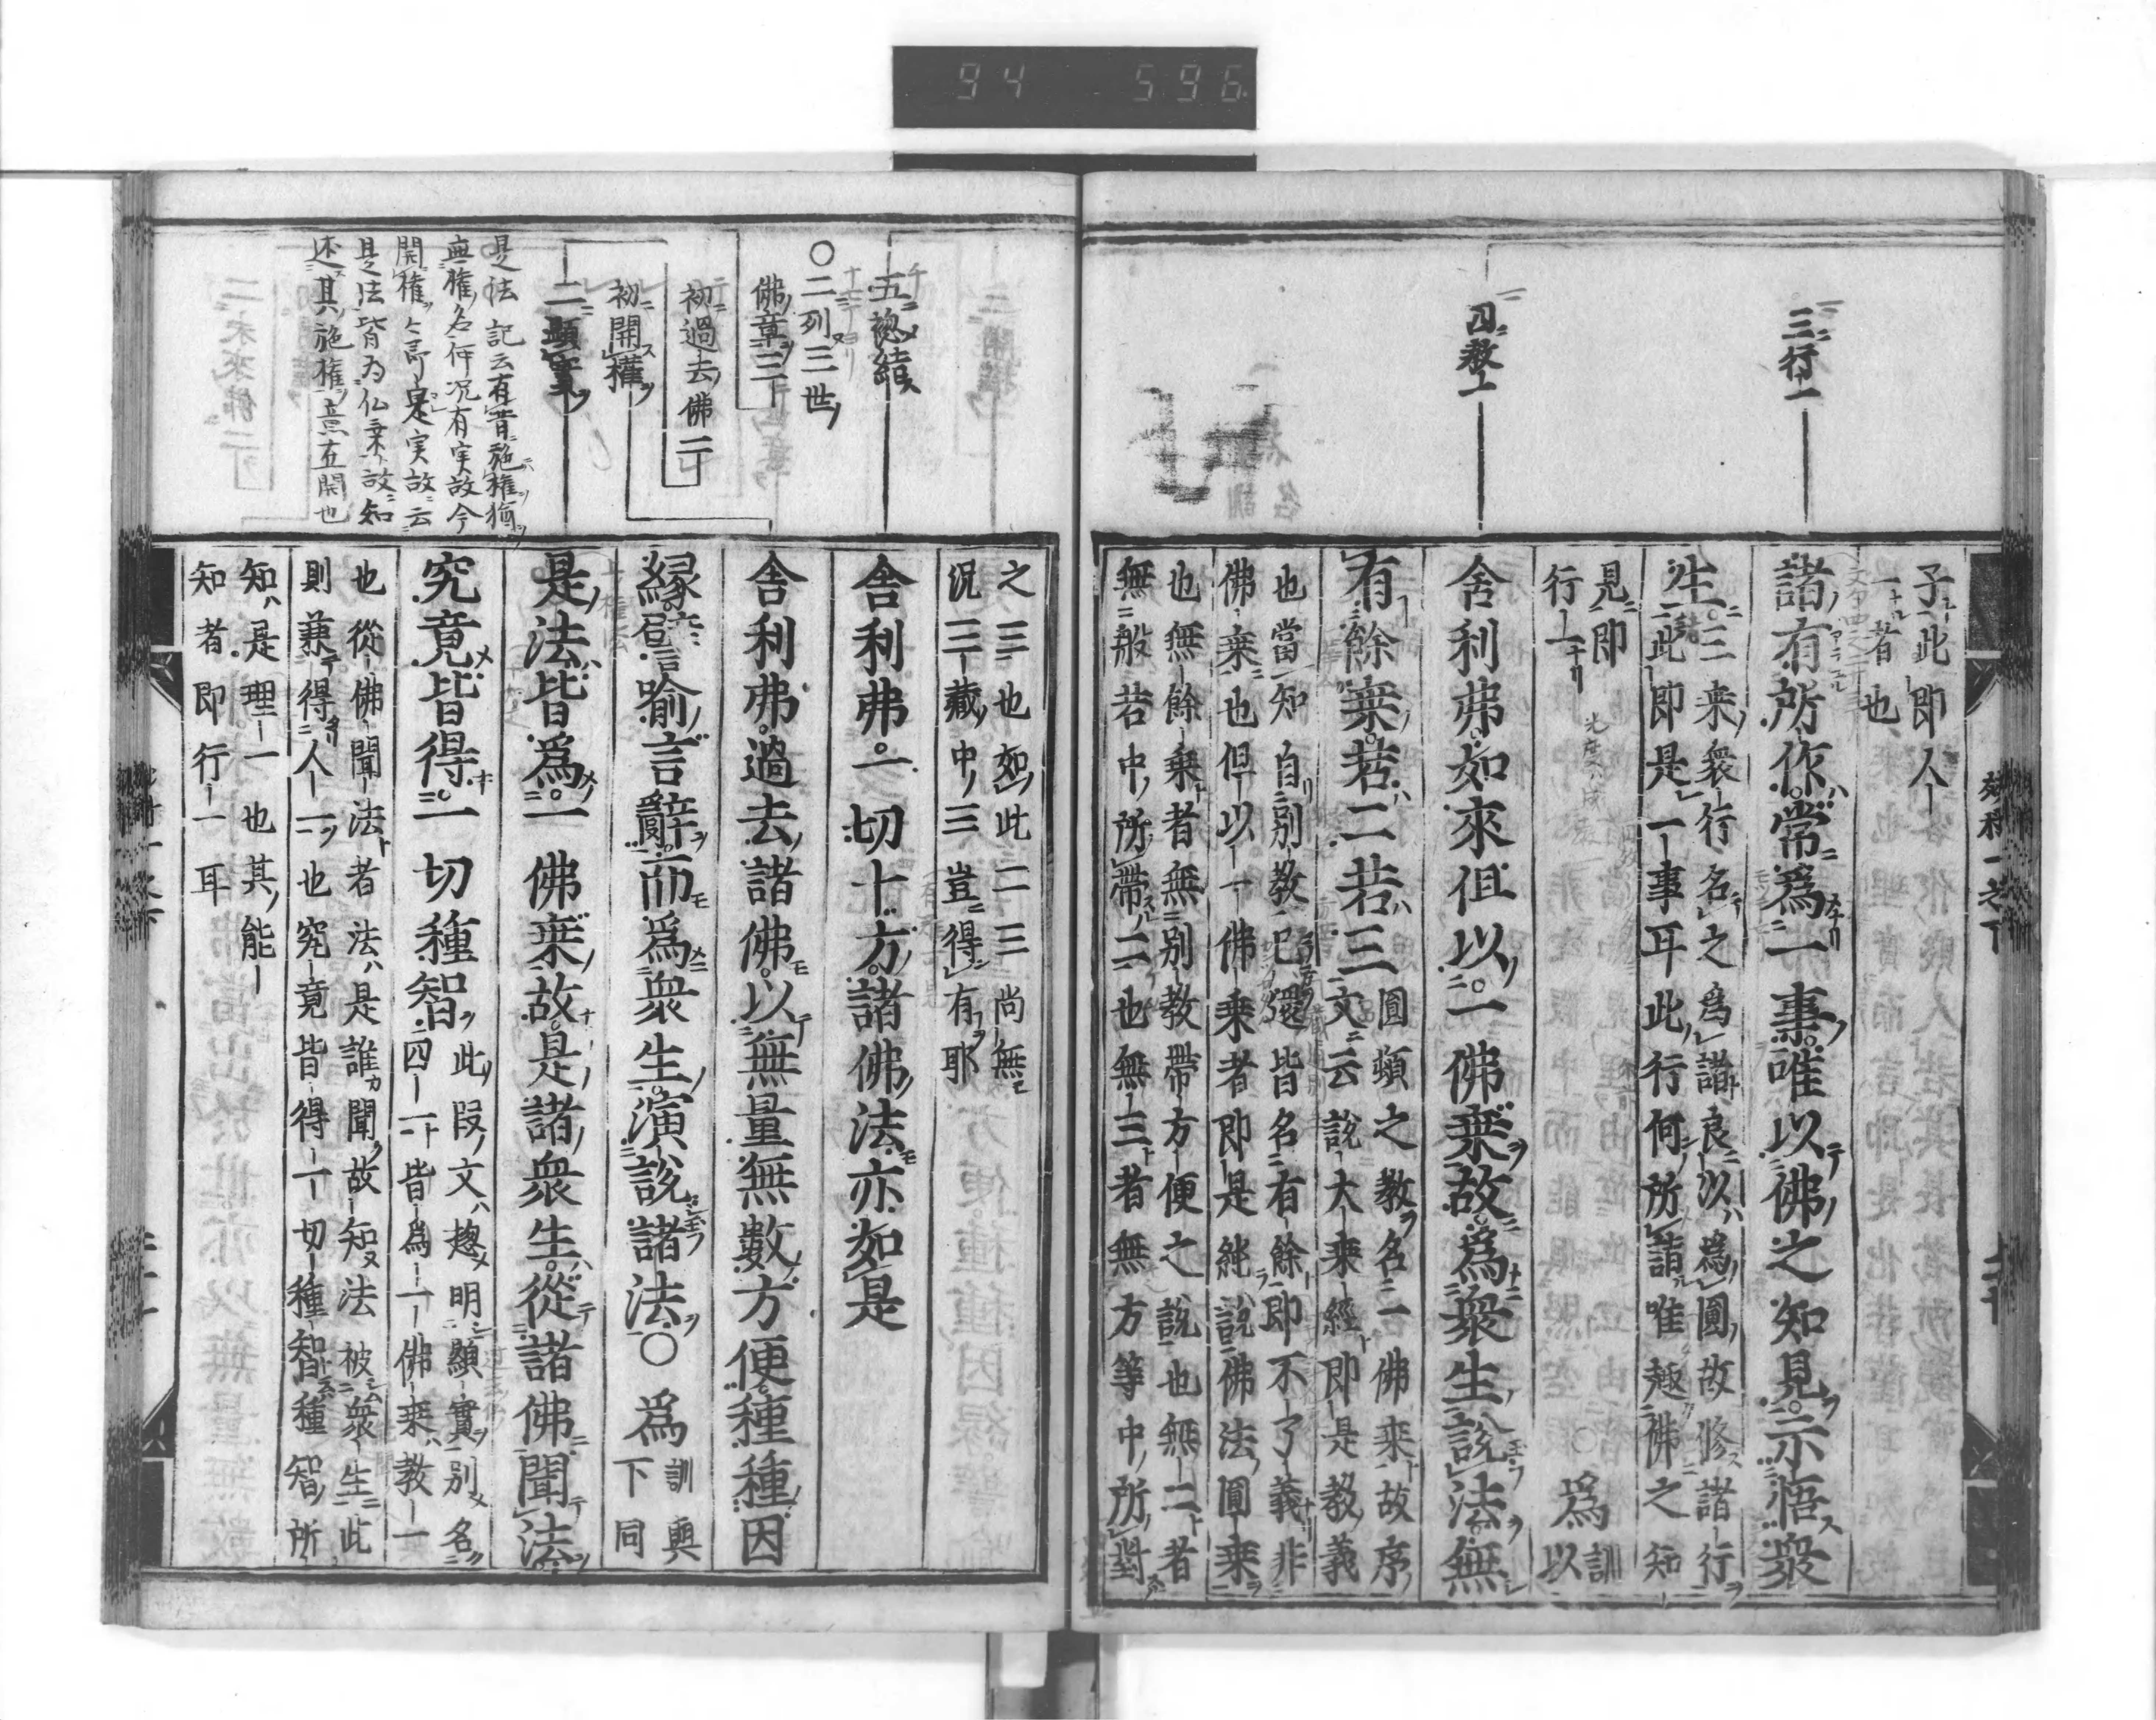 94 596
三行一
四教一
子一此即人一
一者也
諸有所作常爲一事唯以佛之知見示悟衆
生三乗衆行名之爲諸良以爲圓故修諸行
此即是一事耳此行何所詣唯趣佛之知
見即
行一
爲訓
以
舍利弗如來但以一佛乗故爲衆生說法無
有餘乗若二若三
圓頓之教名一佛乗故序
文云說大乗經即是教義
也當知自別教已還皆名有餘即不了義非
佛乗也但以一佛乗者即是純說佛法圓乗
也無餘乗者無別教帶方便之說也無二者
無般若中所帶二也無三者無方等中所對
五總結
○二列三世
佛章三
初過去佛二
初開權
二顯實
是法記云有昔施權猶
無權名何况有実故今
開權是実故云
是法皆为仏乗故知
述其施權意在開也
之三也如此二三尚無
況三藏中三豈得有耶
舍利弗一切十方諸佛法亦如是
舍利弗過去諸佛以無量無數方便種種因
緣譬喻言辭而爲衆生演說諸法○爲
訓與
下同
是法皆爲一佛乗故是諸衆生從諸佛聞法
究竟皆得一切種智
此段文總明顯實別名
四一皆爲一佛乗教一
也從佛聞法者法是誰聞故知法被衆生此
則兼得人一也究竟皆得一切種智種智所
知是理一也其能
知者即行一耳